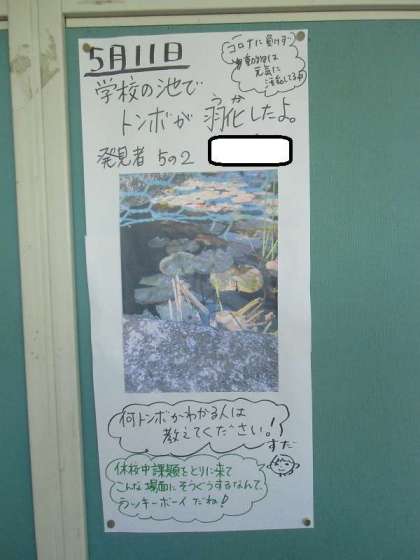 5月11日
コロナに負けず
動物は
元気に
活動してるよ
学校の池で
トンボが羽化したよ。
発見者 5の2
何トンボかわかる人は
教えてください!
すだ
休校中課題をとりに来て
こんな場面にそうぐうするなんて、
ラッキーボーイだね!